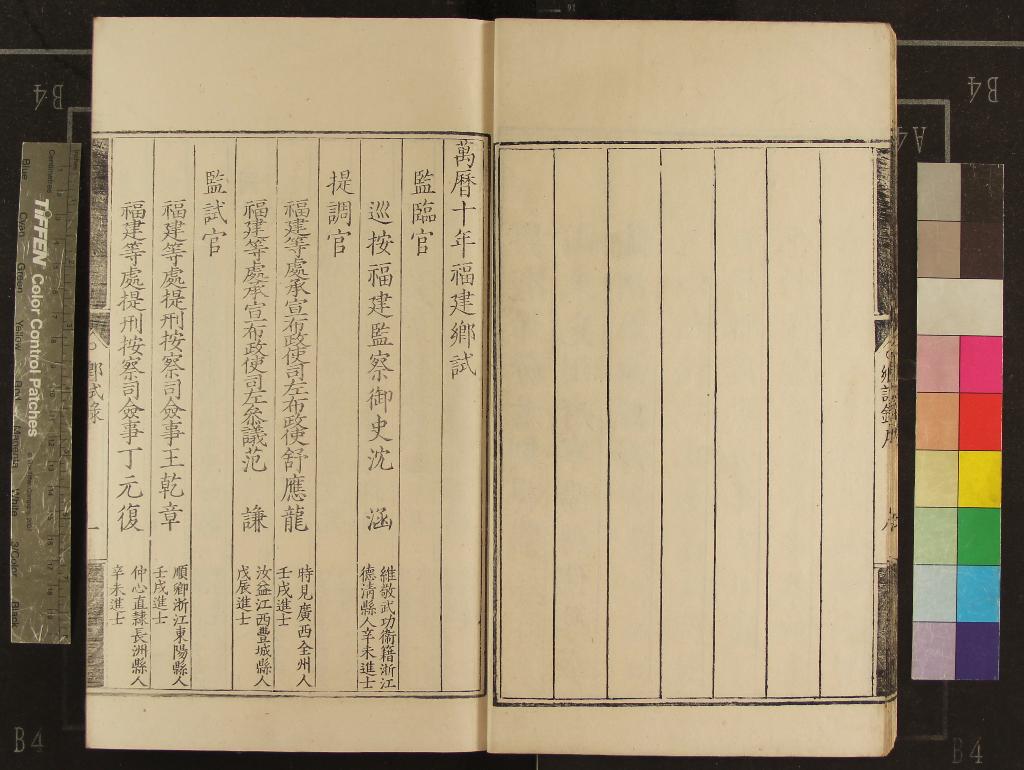 萬曆十年福建鄉試
監臨官
巡按福建監察御史沈　涵
維敬武功衞籍浙江
德清縣人辛未進士
提調官
福建等處承宣布政使司左布政使舒應龍
時見廣西全州人
壬戌進士
福建等處承宣布政使司左叅議范　謙
汝益江西豐城縣人
戊辰進士
監試官
福建等處提刑按察司僉事王乾章
順卿浙江東陽縣人
壬戌進士
福建等處提刑按察司僉事丁元復
仲心直隸長洲縣人
辛未進士
鄉試錄
一
TIFFEN Color Control Patches
Blue
Cyan
Green
Yellow
Red
Magenta
White
3/Color
Black
B4
B4
B4
B4
A4